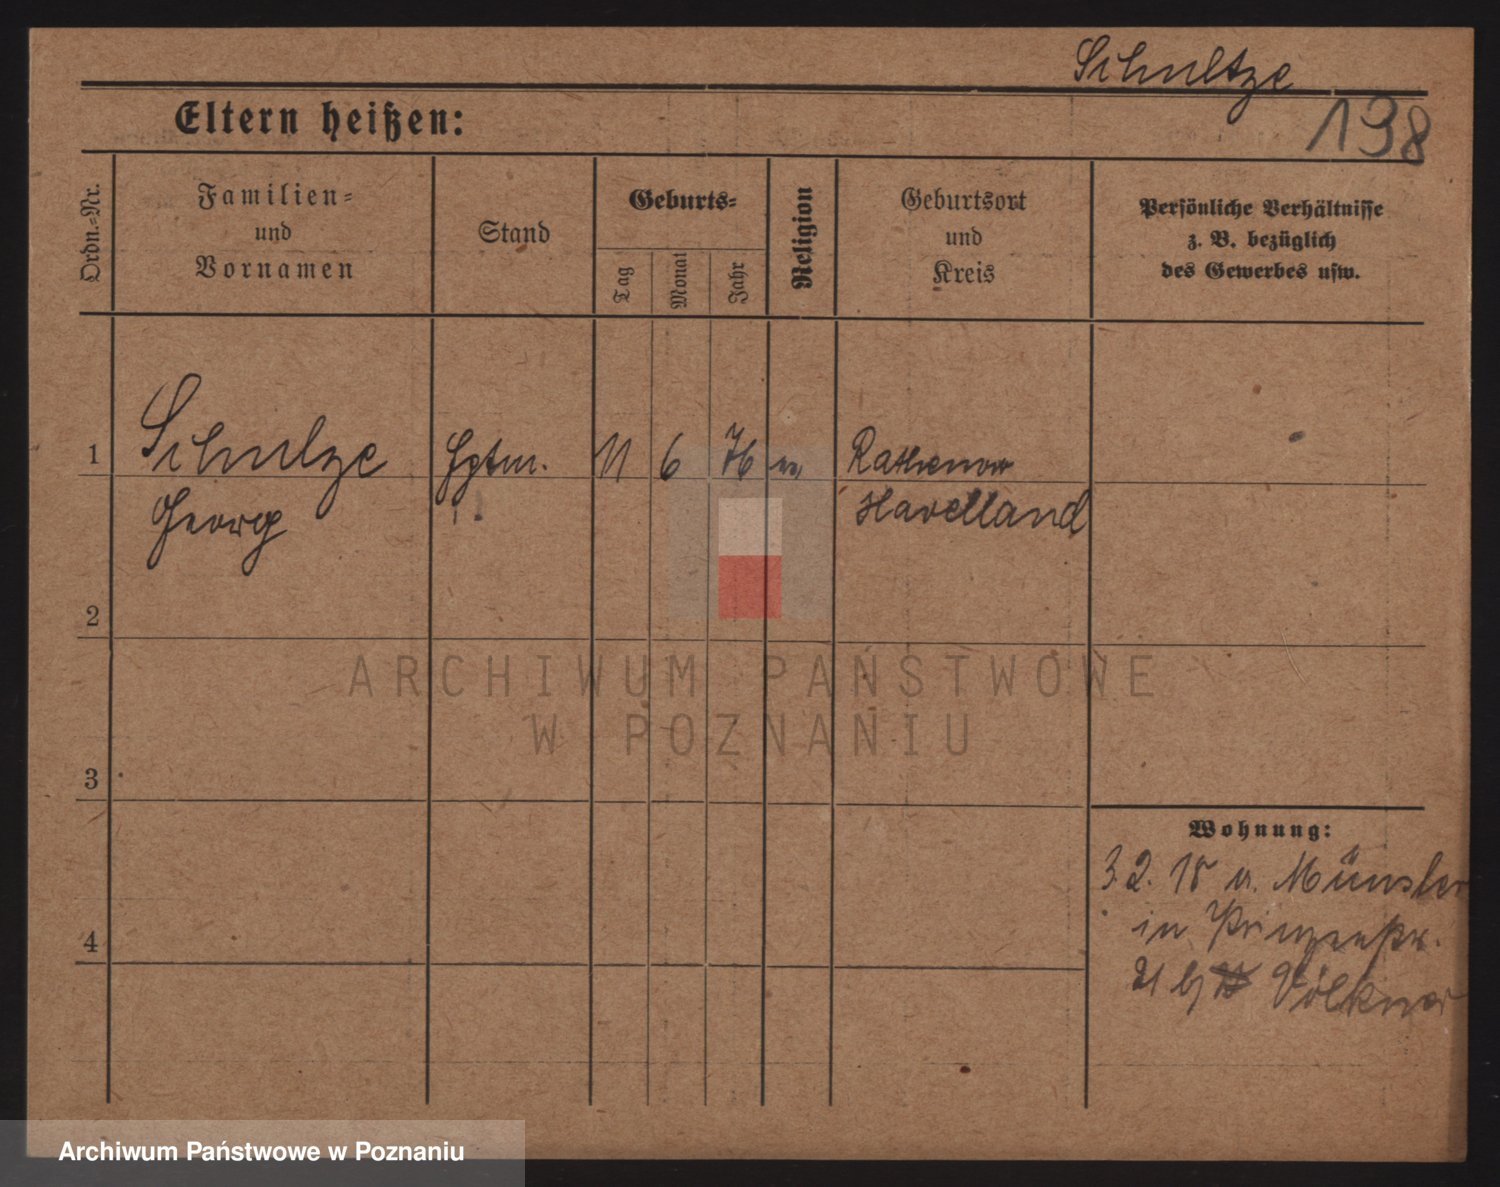 Schultze
138
Eltern heißen:
Ordn.-Nr.
Familien-
und
Vornamen
Stand
Geburts-
Tag
Monat
Jahr
Religion
Geburtsort
und
Kreis
Persönliche Verhältnisse
z. B. bezüglich
des Gewerbes usw.
1
Schulze
Georg
Hptm.
11
6
76
ev.
Rathenow
Havelland
2
3
4
Wohnung:
3.2.18 v. Münster
in Prinzenstr.
21 bei Völkner
ARCHIWUM PAŃSTWOWE
W POZNANIU
Archiwum Państwowe w Poznaniu